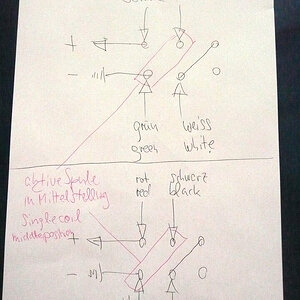 +
-
grün weiss
green white
aktive Spule
in Mittelstellung
Singlecoil
middleposition
rot schwarz
red black
+
-